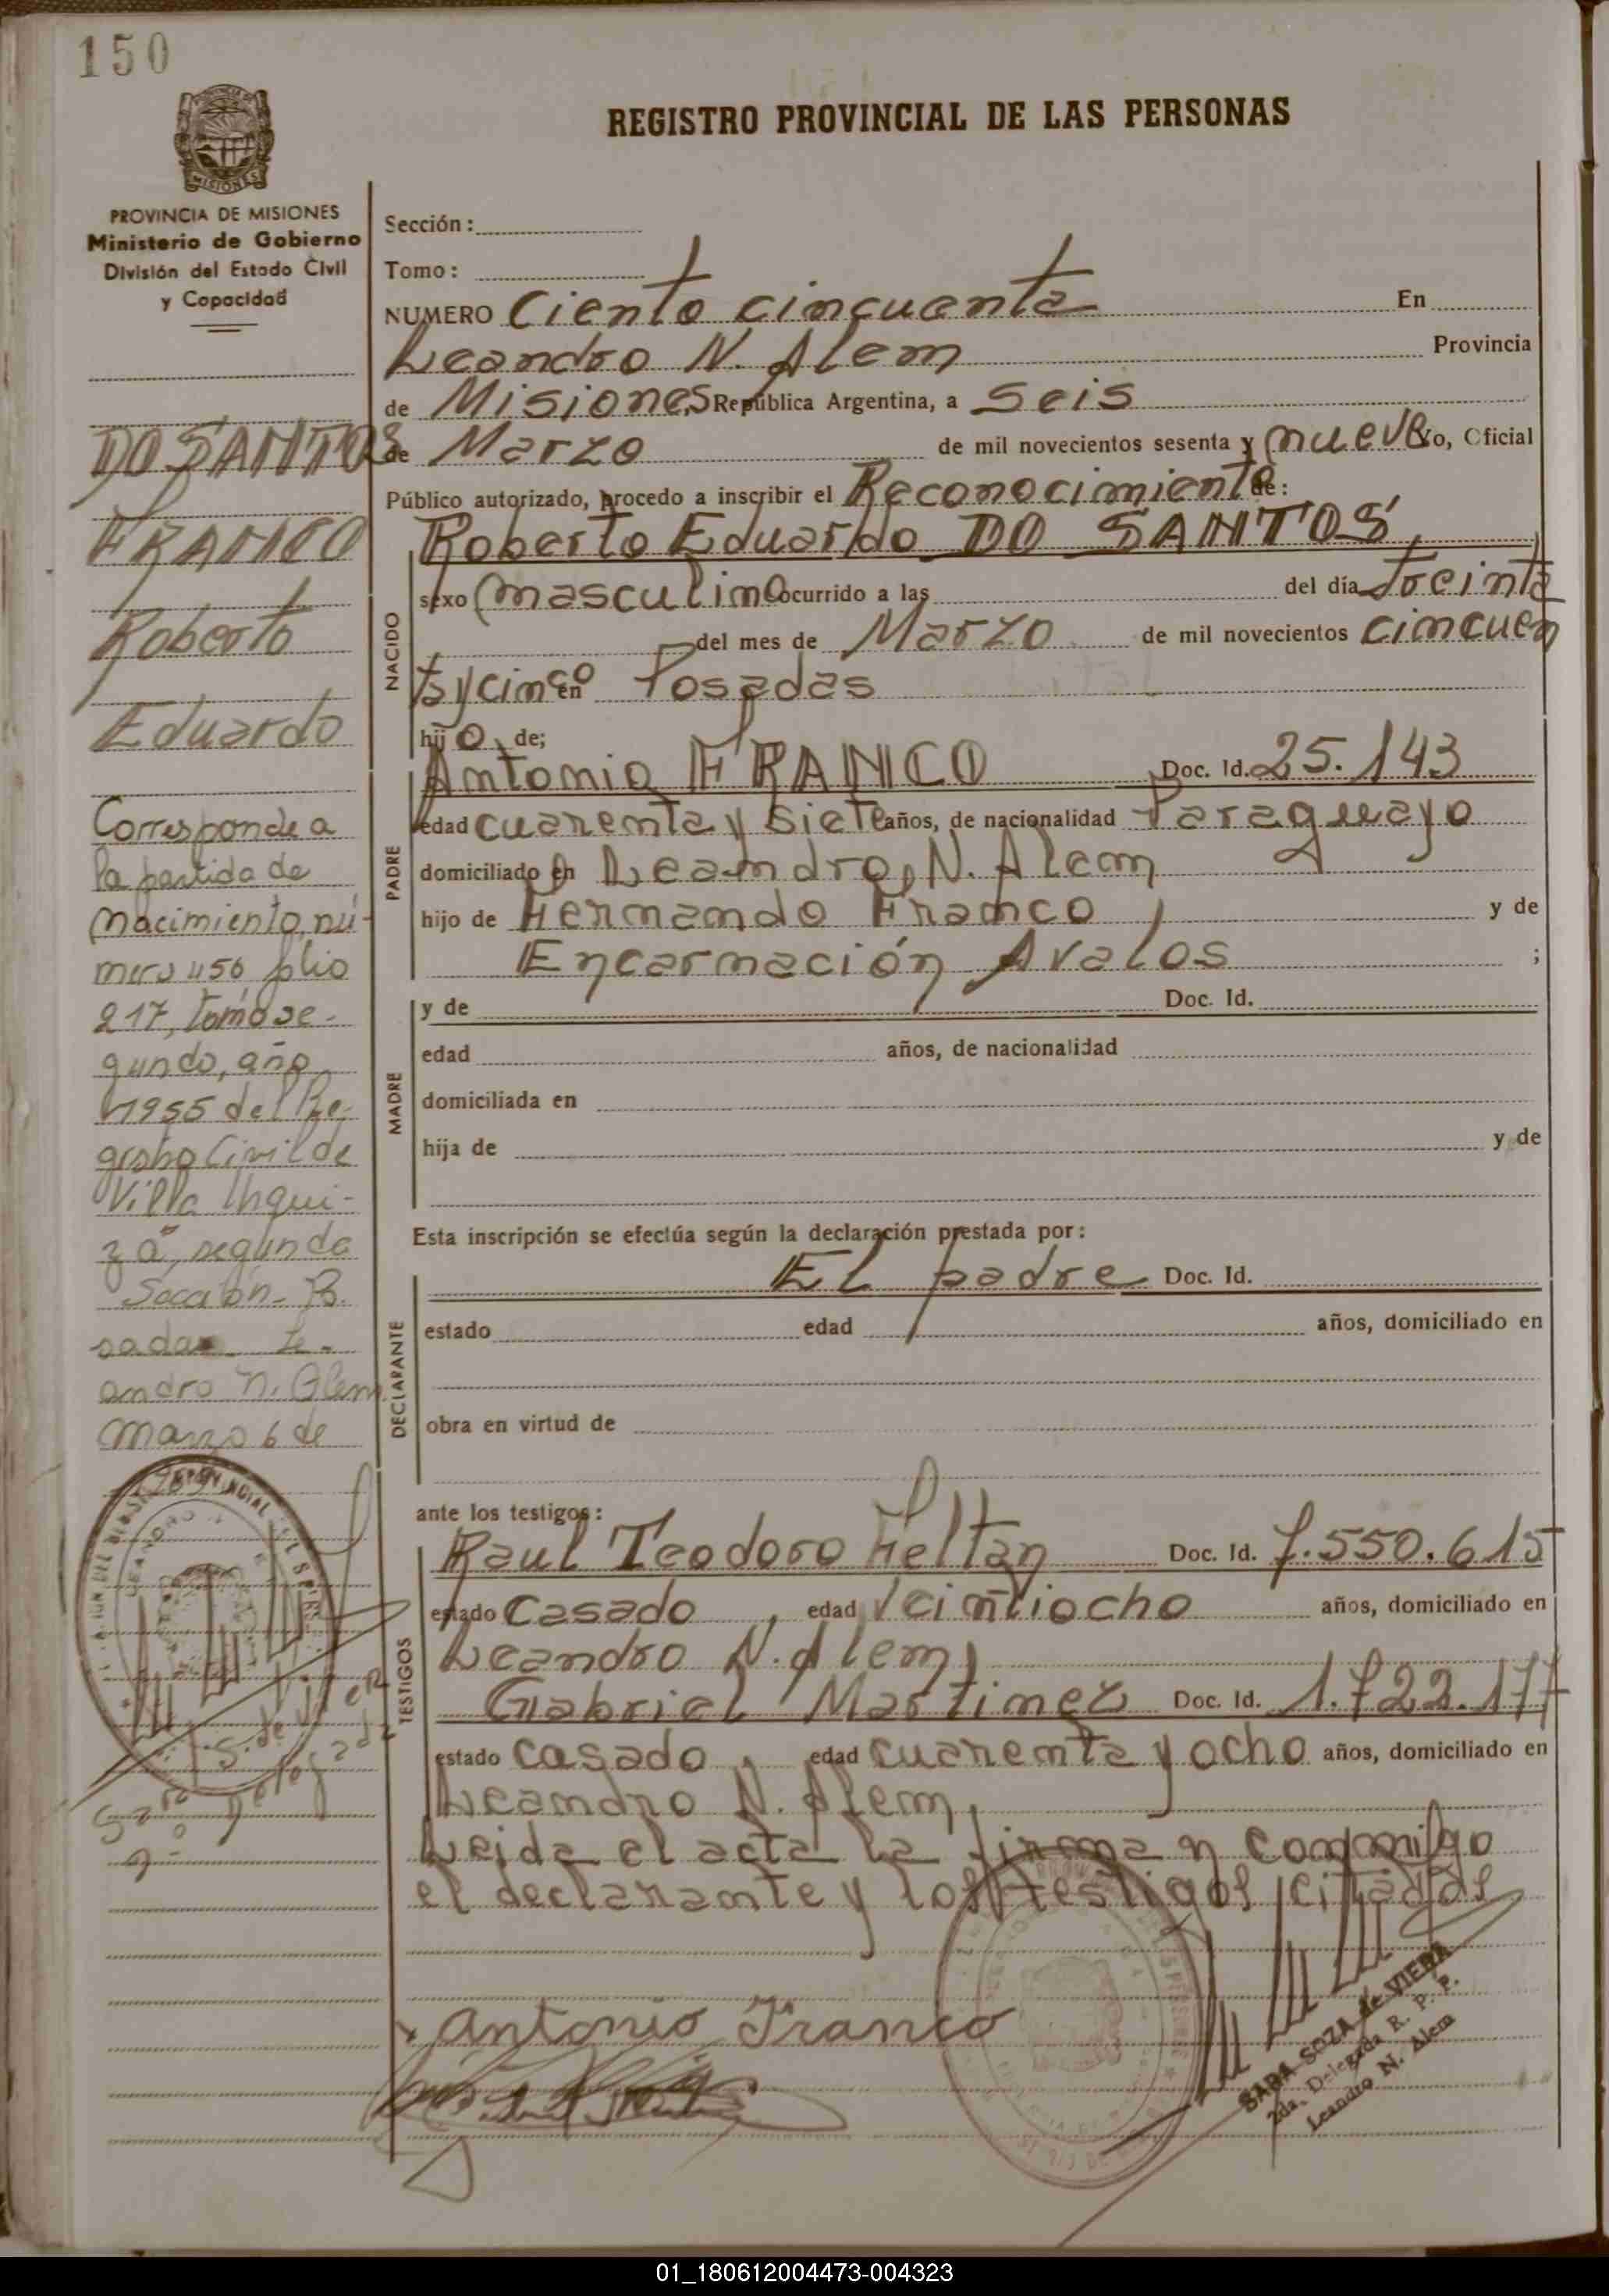 150
REGISTRO PROVINCIAL DE LAS PERSONAS
PROVINCIA DE MISIONES
Ministerio de Gobierno
División del Estado Civil
y Capacidad
DO SANTOS
FRANCO
Roberto
Eduardo
Corresponde a
la partida de
nacimiento, nú-
mero 456 folio
217, tomo se-
gundo, año
1955 del Re-
gistro Civil de
Villa Urqui-
za, segunda
Sección - Po
sadas - Le-
andro N. Alem
marzo 6 de
Sección:
Tomo:
NUMERO Ciento cincuenta En
Leandro N. Alem Provincia
de Misiones República Argentina, a Seis
de Marzo de mil novecientos sesenta y nueve yo, Oficial
Público autorizado, procedo a inscribir el Reconocimiento de:
Roberto Eduardo DO SANTOS,
NACIDO
sexo masculino ocurrido a las del día treinta
del mes de Marzo de mil novecientos cincuen
ta y cinco en Posadas
hijo de;
PADRE
Antonio FRANCO Doc. Id. 25.143
edad cuarenta y siete años, de nacionalidad Paraguayo
domiciliado en Leandro N. Alem
hijo de Hernando Franco y de
Encarnación Avalos ;
MADRE
y de Doc. Id.
edad años, de nacionalidad
domiciliada en
hija de y de
Esta inscripción se efectúa según la declaración prestada por:
DECLARANTE
El padre Doc. Id.
estado edad años, domiciliado en
obra en virtud de
ante los testigos:
TESTIGOS
Raul Teodoro Feltan Doc. Id. 7.550.615
estado casado, edad veintiocho años, domiciliado en
Leandro N. Alem,
Gabriel Martinez Doc. Id. 1.722.177
estado casado, edad cuarenta y ocho años, domiciliado en
Leandro N. Alem,
Leida el acta la firman conmigo
el declarante y los testigos citados
Antonio Franco
SARA SOZA de VIERA
2da. Delegada R. P. P.
Leandro N. Alem
01_180612004473-004323